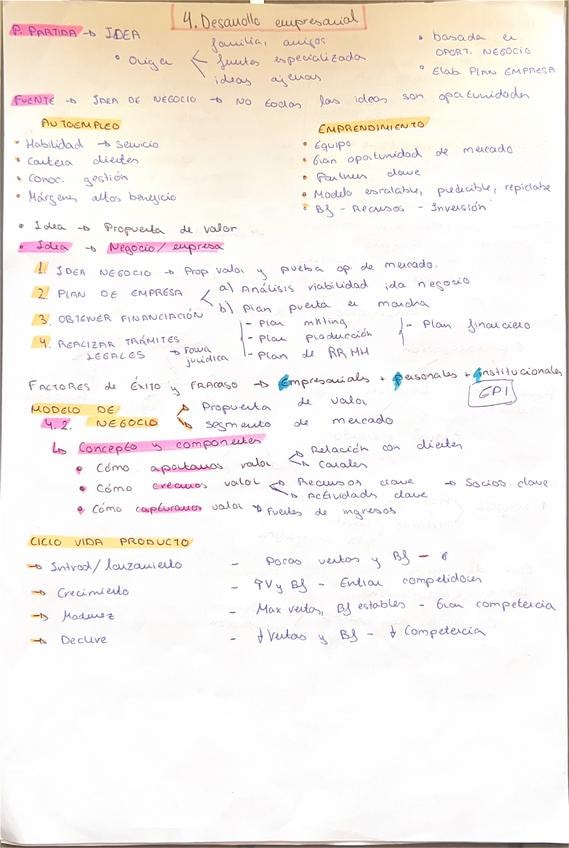 4. Desarrollo empresarial
P. PARTIDA → IDEA
• Origen < familia, amigos
fuentes especializada
ideas ajenas
• basada en
OPORT. NEGOCIO
• Elab PLAN EMPRESA
FUENTE → IDEA DE NEGOCIO → NO todas las ideas son oportunidades
AUTOEMPLEO
• Habilidad → servicio
• Cartera clientes
• Conoc. gestión
• Márgenes altos beneficio
EMPRENDIMIENTO
• Equipo
• Gran oportunidad de mercado
• Partner clave
• Modelo escalable, predicible, replicable
• Bf - Recursos - Inversión
• Idea → Propuesta de valor
• Idea → Negocio / empresa
1. IDEA NEGOCIO → Prop valor y prueba op. de mercado.
2. PLAN DE EMPRESA < a) Análisis viabilidad ida negocio
b) Plan puesta en marcha
3. OBTENER FINANCIACIÓN
- Plan mkting
- Plan Producción
- Plan de RRHH
- Plan financiero
4. REALIZAR TRÁMITES
LEGALES → Forma
jurídica
FACTORES de ÉXITO y FRACASO → Empresariales + personales + institucionales
EPI
4.2. MODELO DE NEGOCIO
→ Propuesta de valor
→ segmento de mercado
↳ Concepto y componentes
• Cómo aportamos valor < Relación con clientes
Canales
• Cómo creamos valor < Recursos clave → Socios clave
Actividades clave
• Cómo capturamos valor → Fuentes de ingresos
CICLO VIDA PRODUCTO
→ Introd/lanzamiento - Pocas ventas y Bf -
→ Crecimiento - ↑V y Bf - Entran competidores
→ Madurez - Max ventas, Bf estables - Gran competencia
→ Declive - ↓Ventas y Bf - ↓ Competencia